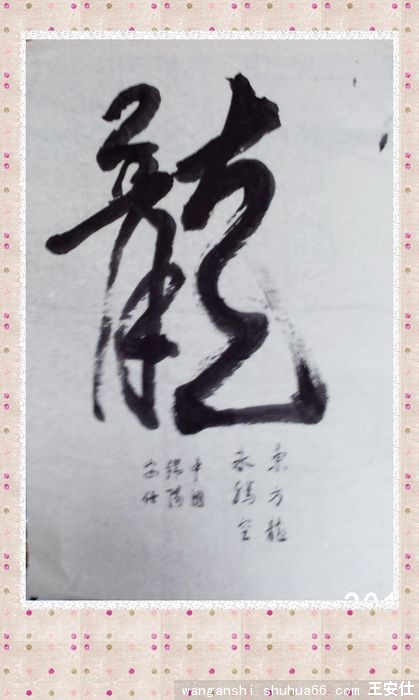 龍
東方龍
永騰空
中國
陽
安仕
201
wanganshi.shuhua66.com 王安仕